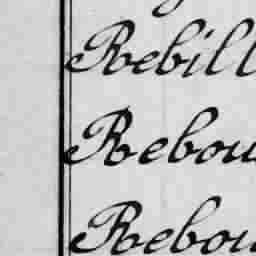 Rebill
Rebou
Rebou